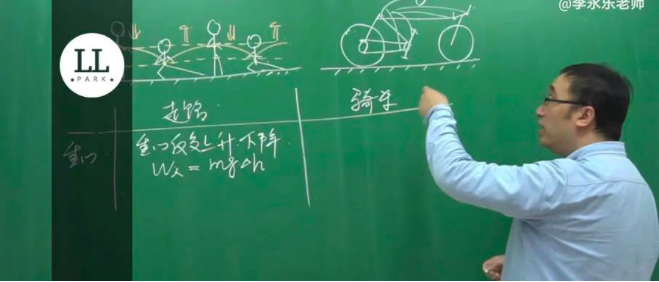 @李永乐老师
LL
• PARK •
走路
骑车
重心
重心反复上升.下降.
W人 = mg△h